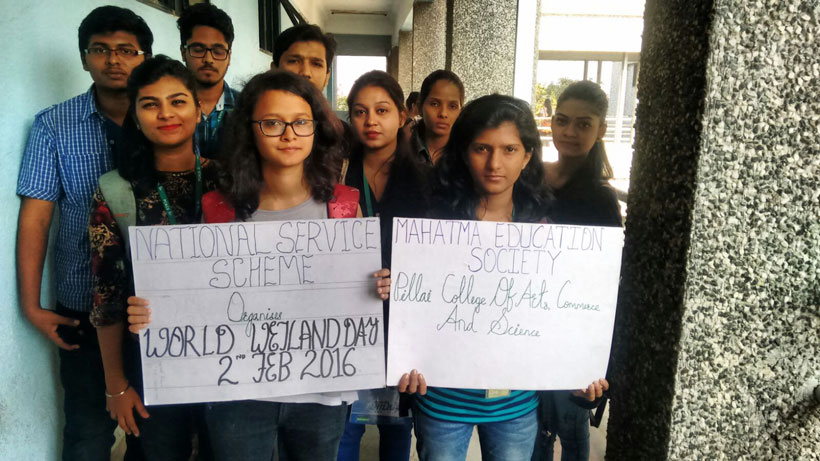 NATIONAL SERVICE
SCHEME
Organises
WORLD WETLAND DAY
2ND FEB 2016
MAHATMA EDUCATION
SOCIETY
Pillai College Of Arts, Commerce
And Science